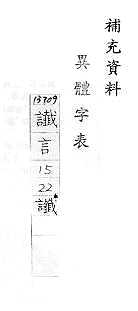 補充資料
異體字表
13709
讖
言
15
22
讖